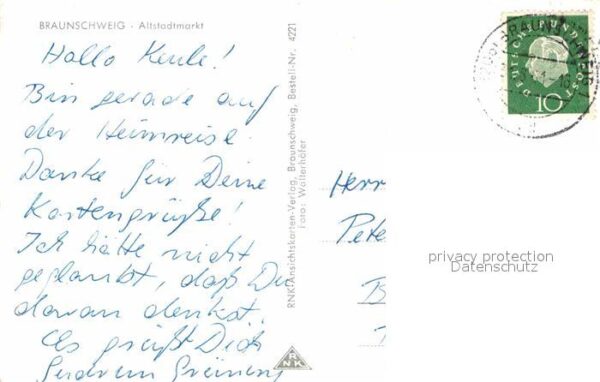 BRAUNSCHWEIG - Altstadtmarkt
Hallo Keule!
Bin gerade auf
der Heimreise.
Danke für Deine
Kartengrüße!
Ich hätte nicht
geglaubt, daß Du
daran denkst.
Es grüßt Dich
RNK-Ansichtskarten-Verlag, Braunschweig, Bestell-Nr. 4221
Foto: Wolterhöfer
RNK
DEUTSCHE BUNDESPOST
10
Herr
Pete
B
privacy protection
Datenschutz